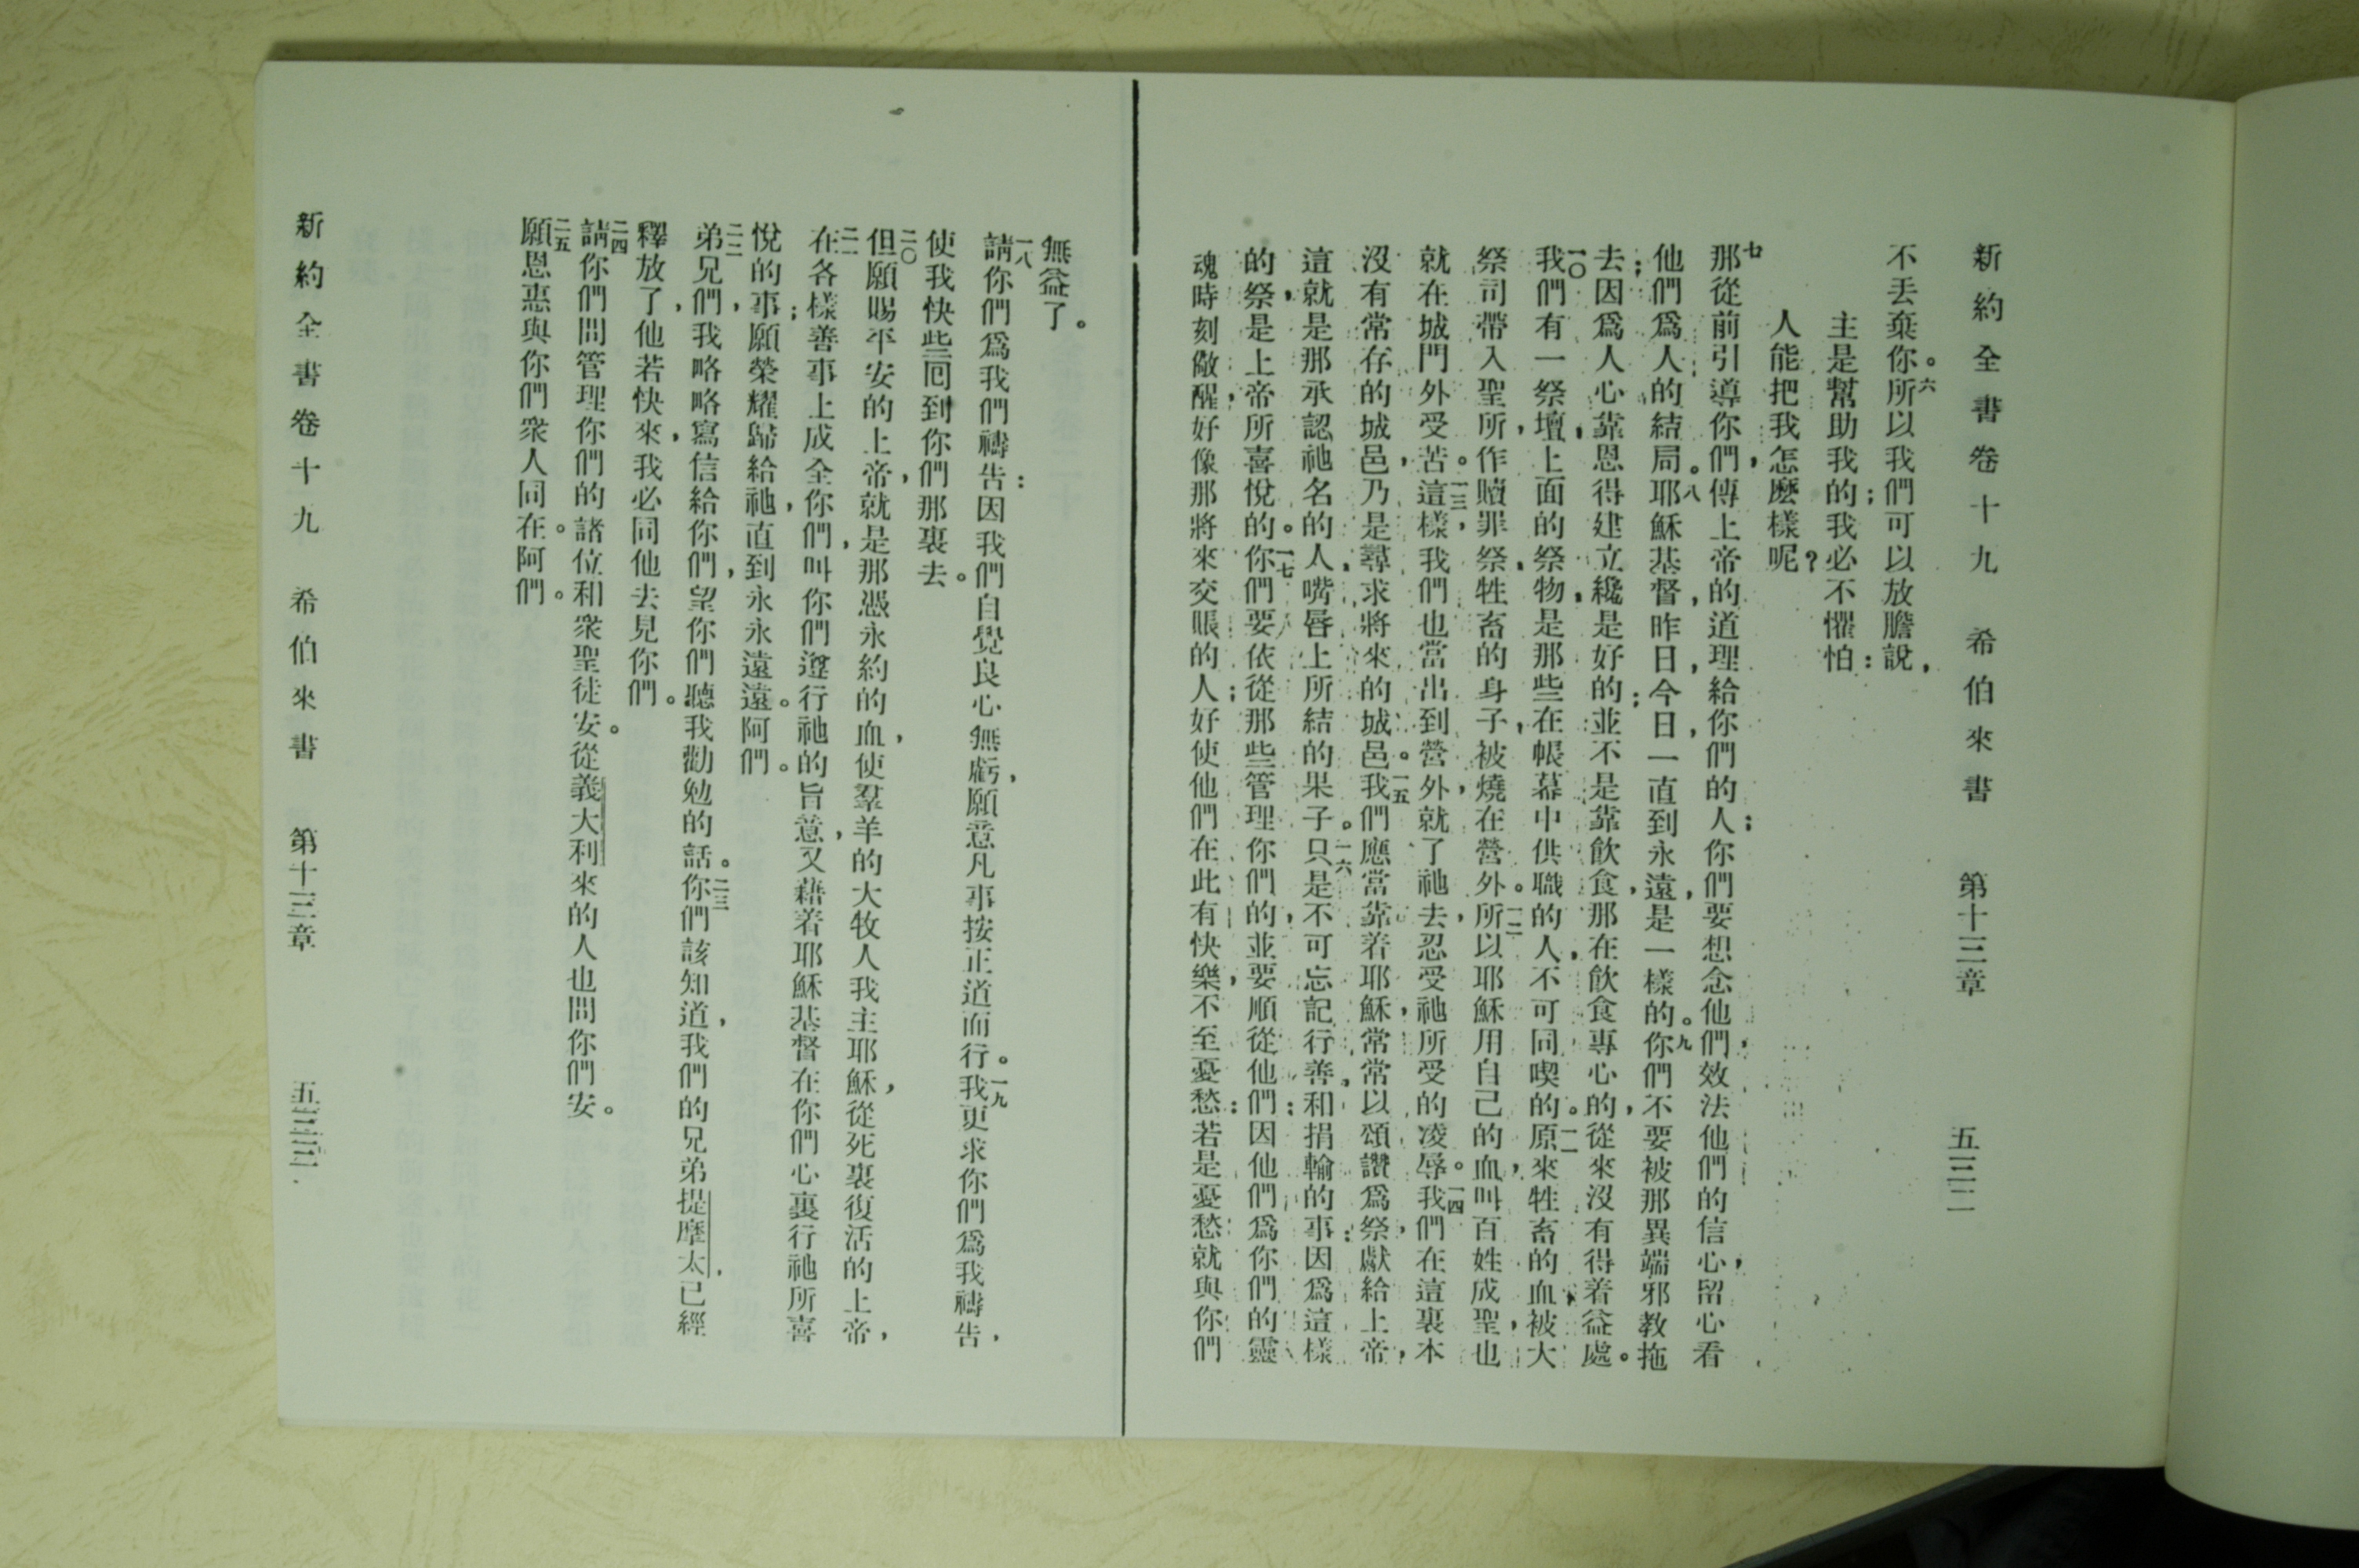 新約全書卷十九 希伯來書 第十三章 五三二
不丟棄你。六所以我們可以放膽說，
主是幫助我的；我必不懼怕：
人能把我怎麼樣呢？
七那從前引導你們，傳上帝的道理給你們的人；你們要想念他們，效法他們的信心，留心看
他們爲人的結局。八耶穌基督，昨日，今日，一直到永遠，是一樣的。九你們不要被那異端邪教拖
去；因爲人心靠恩得建立纔是好的；並不是靠飲食，那在飲食專心的，從來沒有得着益處。
一〇我們有一祭壇，上面的祭物，是那些在帳幕中供職的人，不可同喫的。一一原來牲畜的血，被大
祭司帶入聖所，作贖罪祭，牲畜的身子，被燒在營外。一二所以耶穌用自己的血，叫百姓成聖，也
就在城門外受苦。一三這樣，我們也當出到營外，就了祂去，忍受祂所受的凌辱。一四我們在這裏本
沒有常存的城邑，乃是尋求將來的城邑。一五我們應當靠着耶穌，常常以頌讚爲祭，獻給上帝，
這就是那承認祂名的人，嘴唇上所結的果子。一六只是不可忘記行善，和捐輸的事：因爲這樣
的祭，是上帝所喜悅的。一七你們要依從那些管理你們的，並要順從他們：因他們爲你們的靈
魂時刻儆醒，好像那將來交賬的人；好使他們在此有快樂，不至憂愁：若是憂愁就與你們
無益了。
一八請你們爲我們禱告：因我們自覺良心無虧，願意凡事按正道而行。一九我更求你們爲我禱告，
使我快些回到你們那裏去。
二〇但願賜平安的上帝，就是那憑永約的血，使羣羊的大牧人我主耶穌，從死裏復活的上帝，
二一在各樣善事上成全你們，叫你們遵行祂的旨意，又藉着耶穌基督在你們心裏行祂所喜
悅的事；願榮耀歸給祂，直到永永遠遠。阿們。
二二弟兄們，我略略寫信給你們，望你們聽我勸勉的話。二三你們該知道，我們的兄弟提摩太，已經
釋放了，他若快來，我必同他去見你們。
二四請你們問管理你們的諸位和衆聖徒安。從義大利來的人也問你們安。
二五願恩惠與你們衆人同在。阿們。
新約全書卷十九 希伯來書 第十三章 五三三